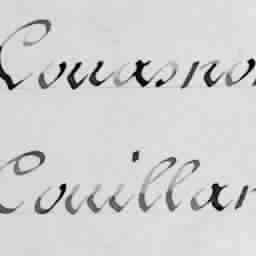 Couasno
Couillar